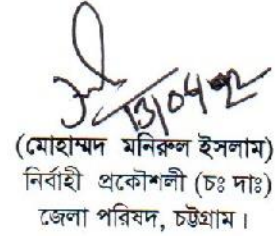 (মোহাম্মদ মনিরুল ইসলাম)
নির্বাহী প্রকৌশলী (চঃ দাঃ)
জেলা পরিষদ, চট্টগ্রাম।